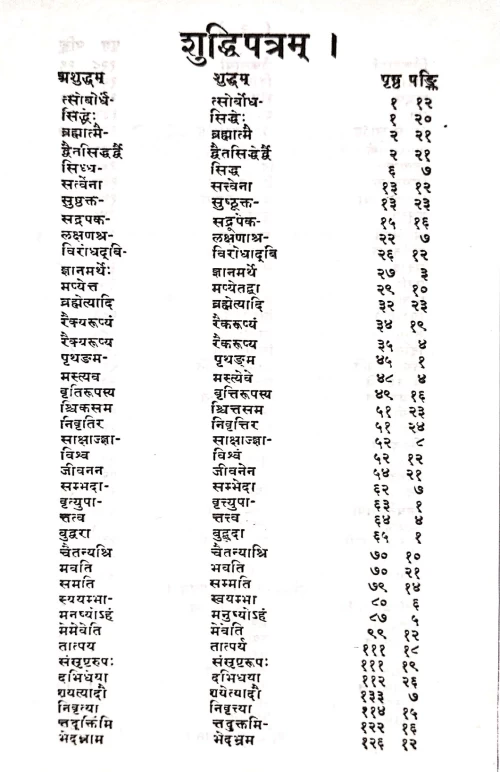 शुद्धिपत्रम् ।
अशुद्धम् शुद्धम् पृष्ठ पङ्क्ति
त्सोबोर्ध- त्सोर्बोध- १ १२
सिर्द्धेः सिद्धेः १ २०
ब्रह्मात्मै- ब्रह्मात्मै २ २१
द्वैतसिद्धर्द्वै द्वैतसिद्धेर्द्वै २ २१
सिध्ध- सिद्ध ६ ७
सत्वेना सत्त्वेना १३ १२
सुष्ठक्त- सुष्ठूक्त- १३ २३
सद्रपक- सद्रूपेक- १५ १६
लक्षणश्र- लक्षणाश्र- २२ ७
विरोधदूबि- विरोधादूबि २६ १२
ज्ञानमर्थेः ज्ञानमर्थे २७ ३
मप्येत्त मप्येतद्वा २९ १०
ब्रह्मेत्यादि ब्रह्मेत्यादि ३२ २३
रैक्यरूप्यं रैकरूप्यं ३४ १९
रैक्यरूप्य रैकरूप्य ३५ ४
पृथङम- पृथङ्म ४५ १
मस्त्यव मस्त्येवे ४८ ४
वृतिरूपस्य वृत्तिरूपस्य ४९ १६
श्चिकसम श्चित्तसम ५१ २३
निवृतिर निवृत्तिर ५१ २४
साक्षाज्ज्ञा- साक्षाज्ज्ञा- ५२ ८
विश्व विश्वं ५२ १२
जीवनन जीवनेन ५४ २१
सम्भदा- सम्भेदा ६२ ७
वृत्युपा- वृत्त्युपा- ६३ १
त्तत्व त्तत्त्व ६४ ४
बुद्वरा बुद्बूदा ६५ १
चैतन्यश्रि चैतन्याश्रि ७० १०
मवति भवति ७० २१
समति सम्मति ७९ १४
स्ययम्भा- स्वयम्भा ८० ६
मनष्योऽहं मनुष्योऽहं ८७ ५
मेमेवेति मेवेति ९९ १२
तात्पय तात्पर्य १११ १८
संसृष्टरुपः संसृष्टरूपः १११ १९
दभिधया दभिधया ११२ २६
शयत्यादौ शयेत्यादौ १३३ ७
निवृत्या निवृत्त्या ११४ १५
त्तदूक्तिंमि त्तदुक्तमि- १२२ १६
भेदभ्नाम भेदभ्रम १२६ १२